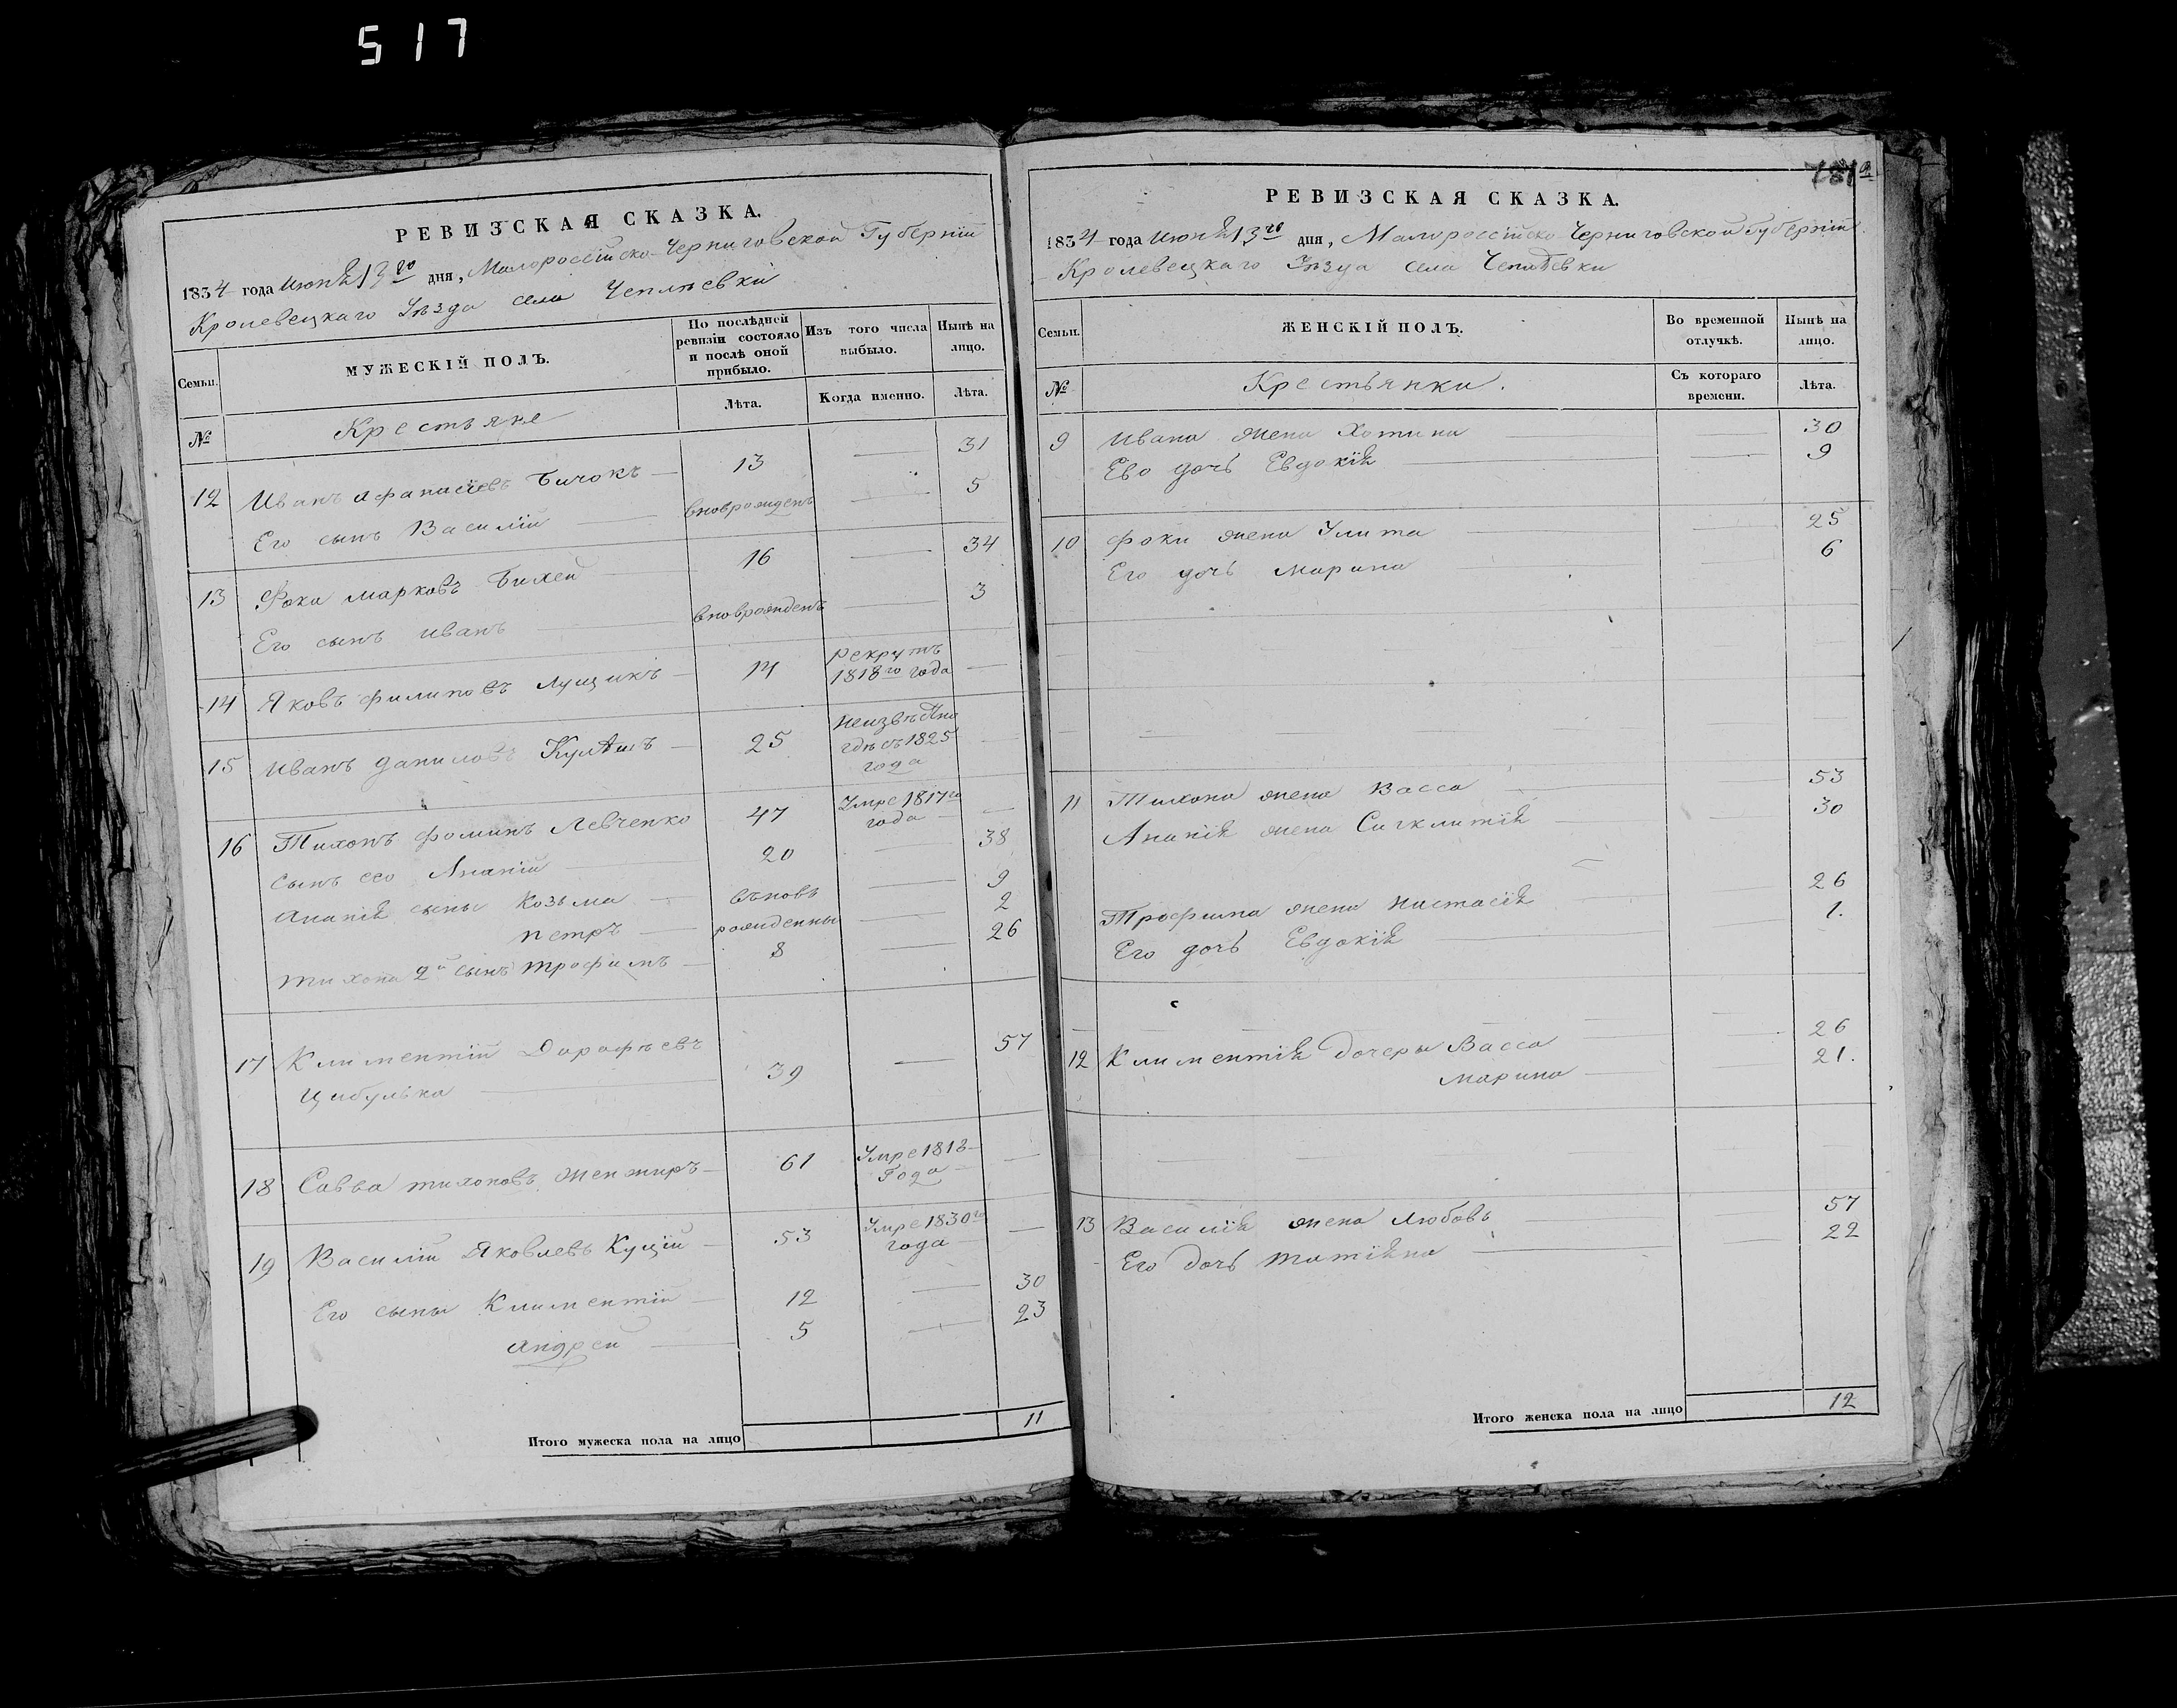 517
РЕВИЗСКАЯ СКАЗКА.
1834 года Июня 13го дня, Малороссійско-Черниговской Губерніи
Кролевецкаго Уѣзда села Чеплѣевки
Семьи.
МУЖЕСКІЙ ПОЛЪ.
По послѣдней ревизіи состояло и послѣ оной прибыло.
Изъ того числа выбыло.
Нынѣ на лицо.
№
Крестьяне
Лѣта.
Когда именно.
Лѣта.
12 Иванъ Афанасіевъ Бичокъ 13 — 31
Его сынъ Василій вноврожденъ — 5
13 Фока Марковъ Бихей 16 — 34
Его сынъ Иванъ вноврожденъ — 3
14 Яковъ Филиповъ Лущикъ 14 рекрутъ 1818го года —
15 Иванъ Даниловъ 25 Неизвѣстно гдѣ съ 1825 года —
16 Тихонъ Фоминъ Левченко 47 Умре 1817го года —
Сынъ его Ананій 20 — 38
Ананія сыны Козьма въновь — 9
Петръ рожденны — 2
Тихона 2й сынъ Трофимъ 8 — 26
17 Климентій Дорофѣевъ
Цибулька 39 — 57
18 Савва Тихоновъ Жежиръ 61 Умре 1818 Года —
19 Василій Яковлевъ Куцій 53 Умре 1830го года —
Его сыны Климентій 12 — 30
Андрей 5 — 23
Итого мужеска пола на лицо 11
781
РЕВИЗСКАЯ СКАЗКА.
1834 года Июня 13го дня, Малороссійско-Черниговской Губерніи
Кролевецкаго Уѣзда села Чеплѣевки
Семьи.
ЖЕНСКІЙ ПОЛЪ.
Во временной отлучкѣ.
Нынѣ на лицо.
№
Крестьянки.
Съ котораго времени.
Лѣта.
9 Ивана жена Хотина — 30
Ево дочь Евдокія — 9
10 Фоки жена Улита — 25
Его дочь Марина — 6
11 Тихона жена Васса — 53
Ананія жена Сигклитія — 30
Трофима жена Настасія — 26
Его дочь Евдокія — 1.
12 Климентія дочеры Васса — 26
Марина — 21.
13 Василія жена Любовь — 57
Его дочь Татіяна — 22
Итого женска пола на лицо 12